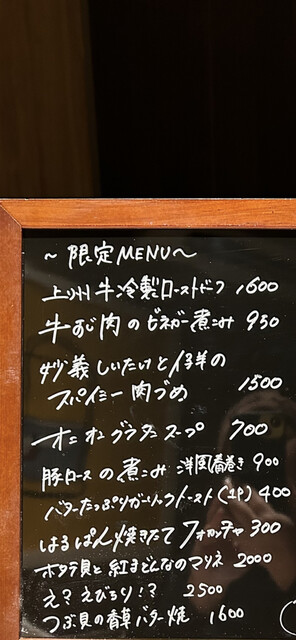 ～限定MENU～
上州牛冷製ローストビーフ 1600
牛すじ肉のビネガー煮こみ 950
妙義しいたけと仔羊の
スパイシー肉づめ 1500
オニオングラタンスープ 700
豚ロースの煮こみ 洋風春巻き 900
バターたっぷりガーリックトースト(1P) 400
はるぱん焼きたてフォカッチャ 300
ホタテ貝と紅まどんなのマリネ 2000
え？えびちり！？ 2500
つぶ貝の香草バター焼 1600